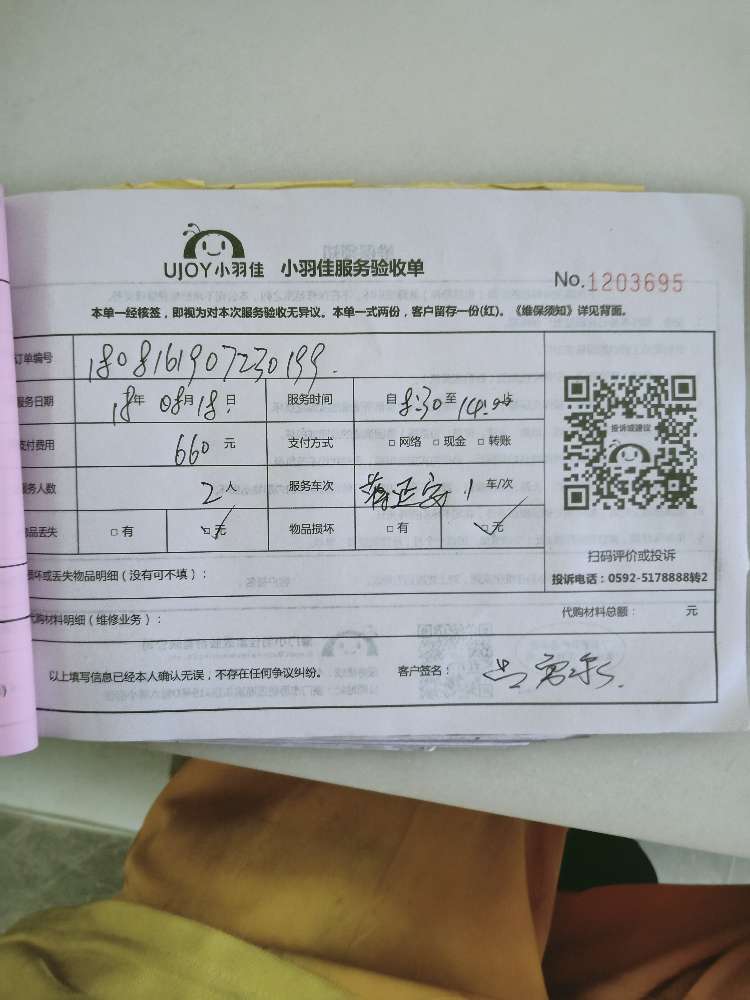 UJOY小羽佳 小羽佳服务验收单
No.1203695
本单一经核签，即视为对本次服务验收无异议。本单一式两份，客户留存一份(红)。《维保须知》详见背面。
订单编号 1808161907230199.
服务日期 18年 08月18日 服务时间 自8:30至14:00止
支付费用 660元 支付方式 □网络 □现金 □转账
服务人数 2人 服务车次 1车/次
物品丢失 □有 □无 物品损坏 □有 □无
投诉或建议
扫码评价或投诉
投诉电话：0592-5178888转2
损坏或丢失物品明细（没有可不填）：
代购材料明细（维修业务）： 代购材料总额： 元
以上填写信息已经本人确认无误，不存在任何争议纠纷。 客户签名：